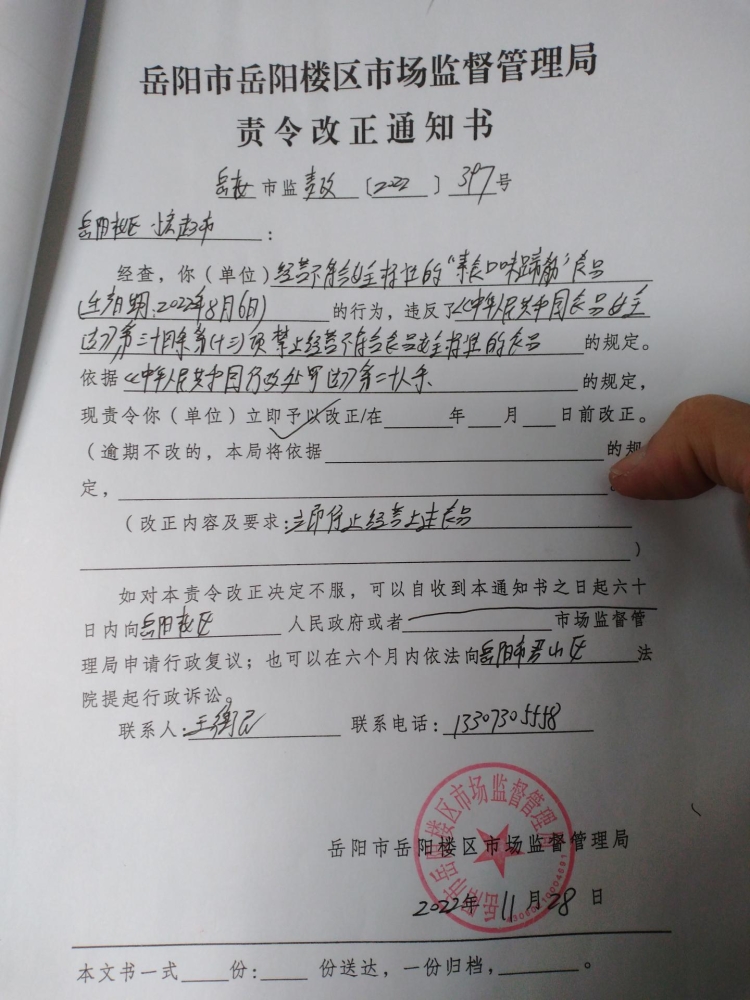 岳阳市岳阳楼区市场监督管理局
责令改正通知书
岳楼市监责改〔2022〕397号
岳阳楼区
:
经查,你(单位)经营不符合安全标准的“素食口味蹄筋”食品
(生产日期:2022年8月6日)的行为,违反了《中华人民共和国食品安全
法》第三十四条第(十三)项禁止经营不符合食品安全标准的食品的规定。
依据《中华人民共和国行政处罚法》第二十八条的规定,
现责令你(单位)立即予以改正/在 年 月 日前改正。
(逾期不改的,本局将依据 的规
定,
(改正内容及要求:立即停止经营上述食品
)
如对本责令改正决定不服,可以自收到本通知书之日起六十
日内向岳阳楼区人民政府或者 市场监督管
理局申请行政复议;也可以在六个月内依法向岳阳市君山区法
院提起行政诉讼。
联系人:王 联系电话:13307305558
岳阳市岳阳楼区市场监督管理局
2022年11月28日
岳阳市岳阳楼区市场监督管理局
本文书一式 份: 份送达,一份归档, 。